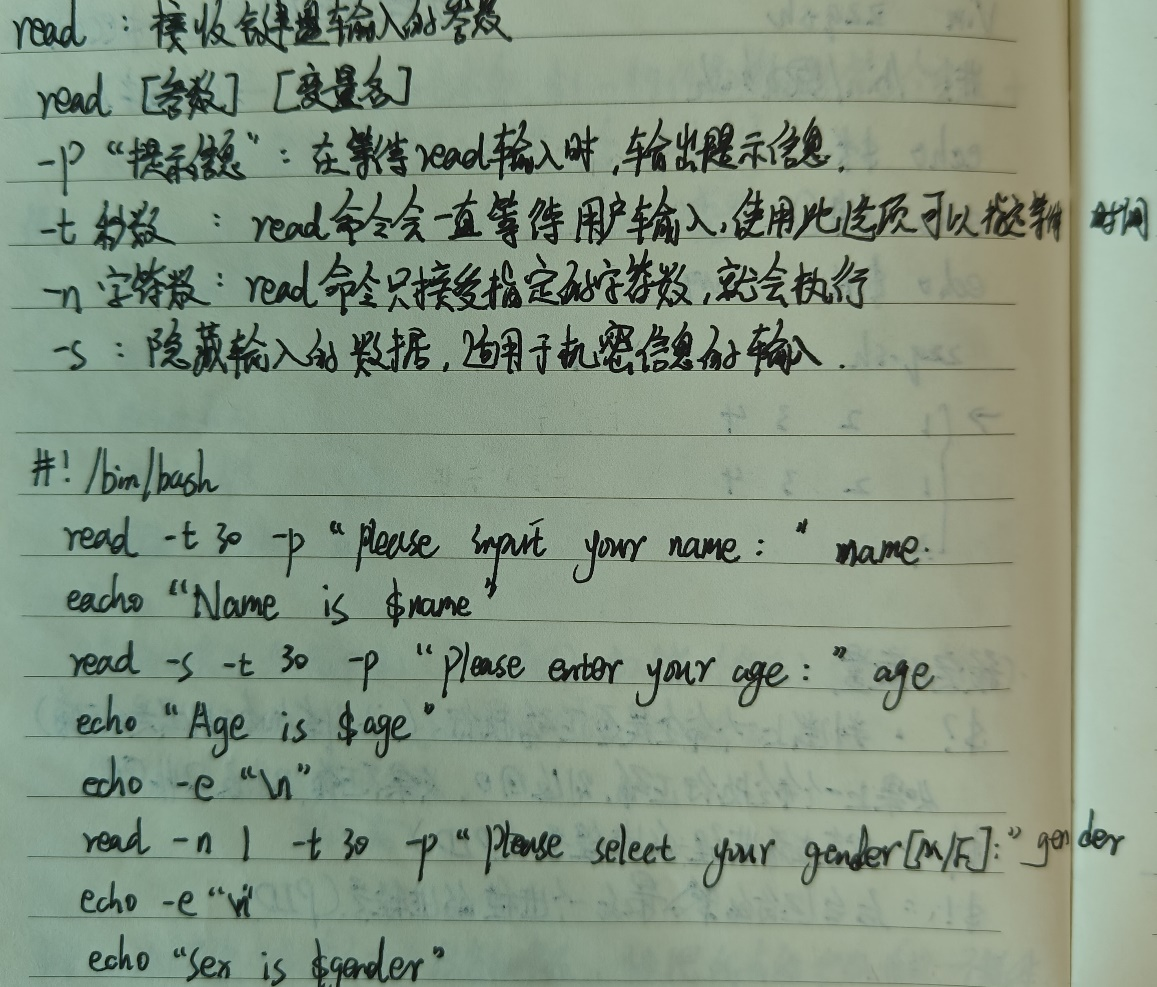 read : 接收键盘输入的参数
read [参数] [变量名]
-p “提示信息” : 在等待read输入时,输出提示信息.
-t 秒数 : read命令会一直等待用户输入,使用此选项可以指定等待时间
-n 字符数 : read命令只接受指定的字符数,就会执行
-s : 隐藏输入的数据,适用于机密信息的输入.
#! /bin/bash
read -t 30 -p “please input your name : ” name.
eacho “Name is $name”
read -s -t 30 -p “please enter your age : ” age
echo “Age is $age”
echo -e “\n”
read -n 1 -t 30 -p “please select your gender[M/F]:” gender
echo -e “\n”
echo “Sex is $gender”